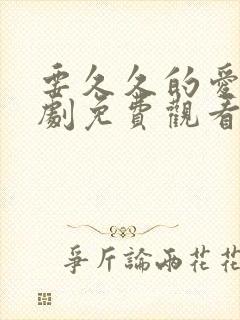 要久久的愛
劇免費觀看
爭斤論兩花花